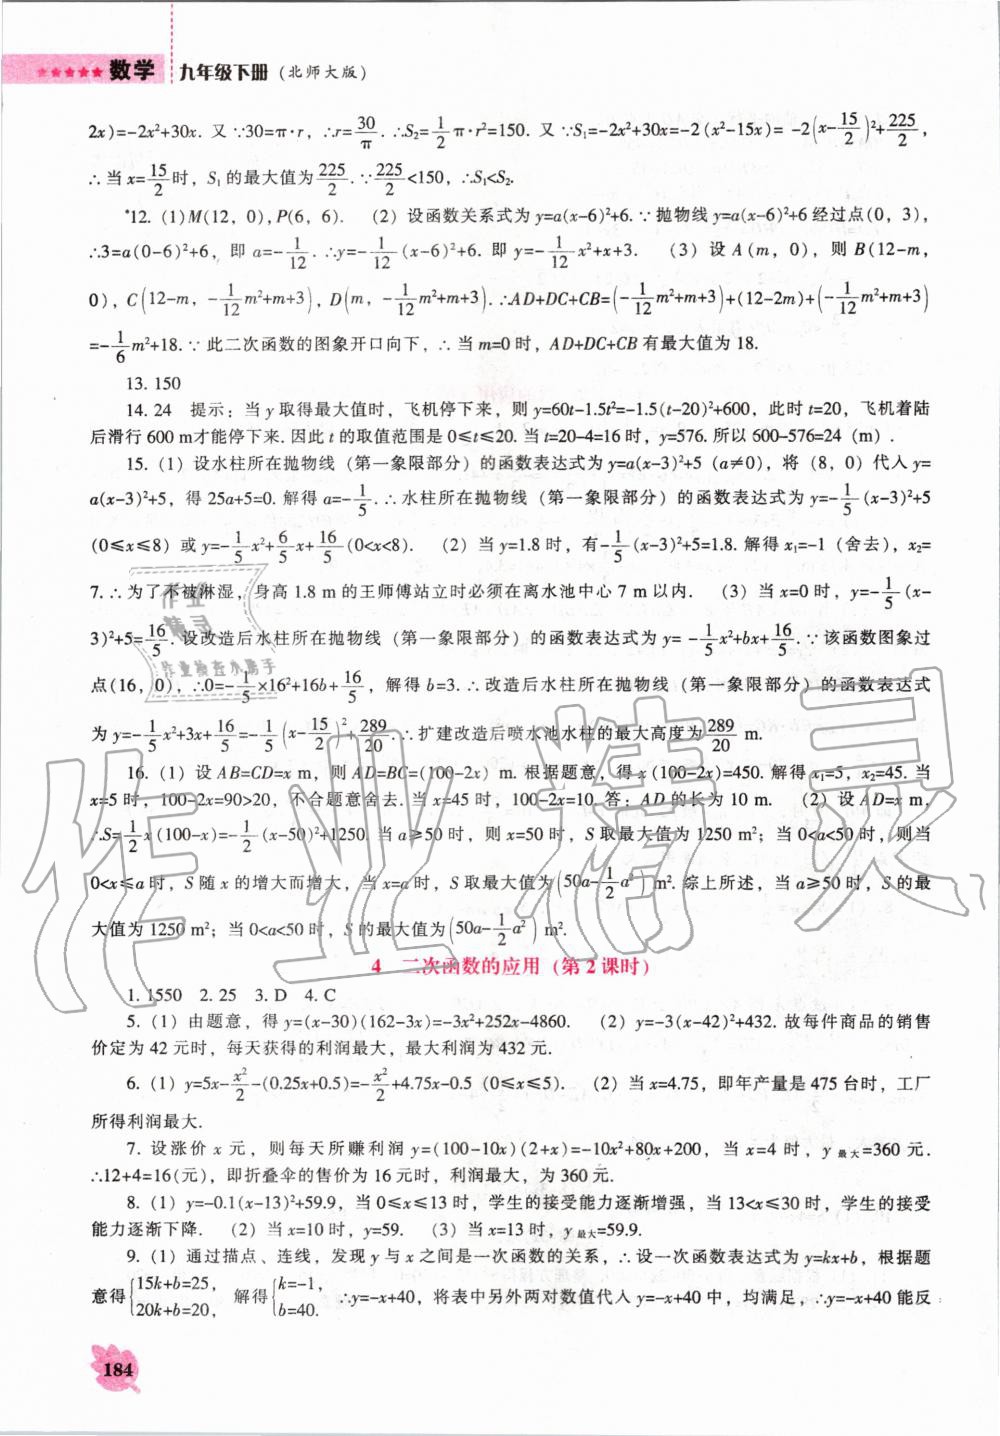 ★★★★★ 数学 九年级下册（北师大版）
2x)=-2x²+30x. 又∵30=π·r，∴r=30/π. ∴S₂=1/2π·r²=150. 又∵S₁=-2x²+30x=-2(x²-15x)= -2(x-15/2)²+225/2，
∴当x=15/2时，S₁的最大值为225/2. ∵225/2<150，∴S₁<S₂.
*12. (1)M(12，0)，P(6，6). (2) 设函数关系式为y=a(x-6)²+6. ∵抛物线y=a(x-6)²+6经过点(0，3)，
∴3=a(0-6)²+6，即a=-1/12. ∴y=-1/12(x-6)²+6. 即y=-1/12x²+x+3. (3) 设A(m，0)，则B(12-m，
0)，C(12-m，-1/12m²+m+3)，D(m，-1/12m²+m+3). ∴AD+DC+CB=(-1/12m²+m+3)+(12-2m)+(-1/12m²+m+3)
=-1/6m²+18. ∵此二次函数的图象开口向下，∴当m=0时，AD+DC+CB有最大值为18.
13. 150
14. 24 提示：当y取得最大值时，飞机停下来，则y=60t-1.5t²=-1.5(t-20)²+600，此时t=20，飞机着陆
后滑行600 m才能停下来. 因此t的取值范围是0≤t≤20. 当t=20-4=16时，y=576. 所以600-576=24（m）.
15. (1) 设水柱所在抛物线（第一象限部分）的函数表达式为y=a(x-3)²+5（a≠0)，将（8，0）代入y=
a(x-3)²+5，得25a+5=0. 解得a=-1/5. ∴水柱所在抛物线（第一象限部分）的函数表达式为y=-1/5(x-3)²+5
(0≤x≤8）或y=-1/5x²+6/5x+16/5(0<x<8). (2) 当y=1.8时，有-1/5(x-3)²+5=1.8. 解得x₁=-1（舍去），x₂=
7. ∴为了不被淋湿，身高1.8 m的王师傅站立时必须在离水池中心7 m以内. (3) 当x=0时，y=-1/5(x-
3)²+5=16/5. 设改造后水柱所在抛物线（第一象限部分）的函数表达式为y= -1/5x²+bx+16/5. ∵该函数图象过
点(16，0)，∴0=-1/5×16²+16b+16/5，解得b=3. ∴改造后水柱所在抛物线（第一象限部分）的函数表达式
为y=-1/5x²+3x+16/5=-1/5(x-15/2)²+289/20. ∴扩建改造后喷水池水柱的最大高度为289/20 m.
16. (1) 设AB=CD=x m，则AD=BC=(100-2x) m. 根据题意，得x(100-2x)=450. 解得x₁=5，x₂=45. 当
x=5时，100-2x=90>20，不合题意舍去. 当x=45时，100-2x=10. 答：AD的长为10 m. (2) 设AD=x m，
∴S=1/2x(100-x)=-1/2(x-50)²+1250. 当a≥50时，则x=50时，S取最大值为1250 m²；当0<a<50时，则当
0<x≤a时，S随x的增大而增大，当x=a时，S取最大值为(50a-1/2a²) m². 综上所述，当a≥50时，S的最
大值为1250 m²；当0<a<50时，S的最大值为(50a-1/2a²) m².
4 二次函数的应用（第2课时）
1. 1550 2. 25 3. D 4. C
5. (1) 由题意，得y=(x-30)(162-3x)=-3x²+252x-4860. (2) y=-3(x-42)²+432. 故每件商品的销售
价定为42元时，每天获得的利润最大，最大利润为432元.
6. (1) y=5x-x²/2-(0.25x+0.5)=-x²/2+4.75x-0.5（0≤x≤5). (2) 当x=4.75，即年产量是475台时，工厂
所得利润最大.
7. 设涨价x元，则每天所赚利润y=(100-10x)(2+x)=-10x²+80x+200，当x=4时，y最大=360元.
∴12+4=16(元)，即折叠伞的售价为16元时，利润最大，为360元.
8. (1) y=-0.1(x-13)²+59.9，当0≤x≤13时，学生的接受能力逐渐增强，当13<x≤30时，学生的接受
能力逐渐下降. (2) 当x=10时，y=59. (3) 当x=13时，y最大=59.9.
9. (1) 通过描点、连线，发现y与x之间是一次函数的关系，∴设一次函数表达式为y=kx+b，根据题
意得{15k+b=25，20k+b=20，解得{k=-1，b=40. ∴y=-x+40，将表中另外两对数值代入y=-x+40中，均满足，∴y=-x+40能反
184
作业
精灵
作业检查小助手
作业精灵